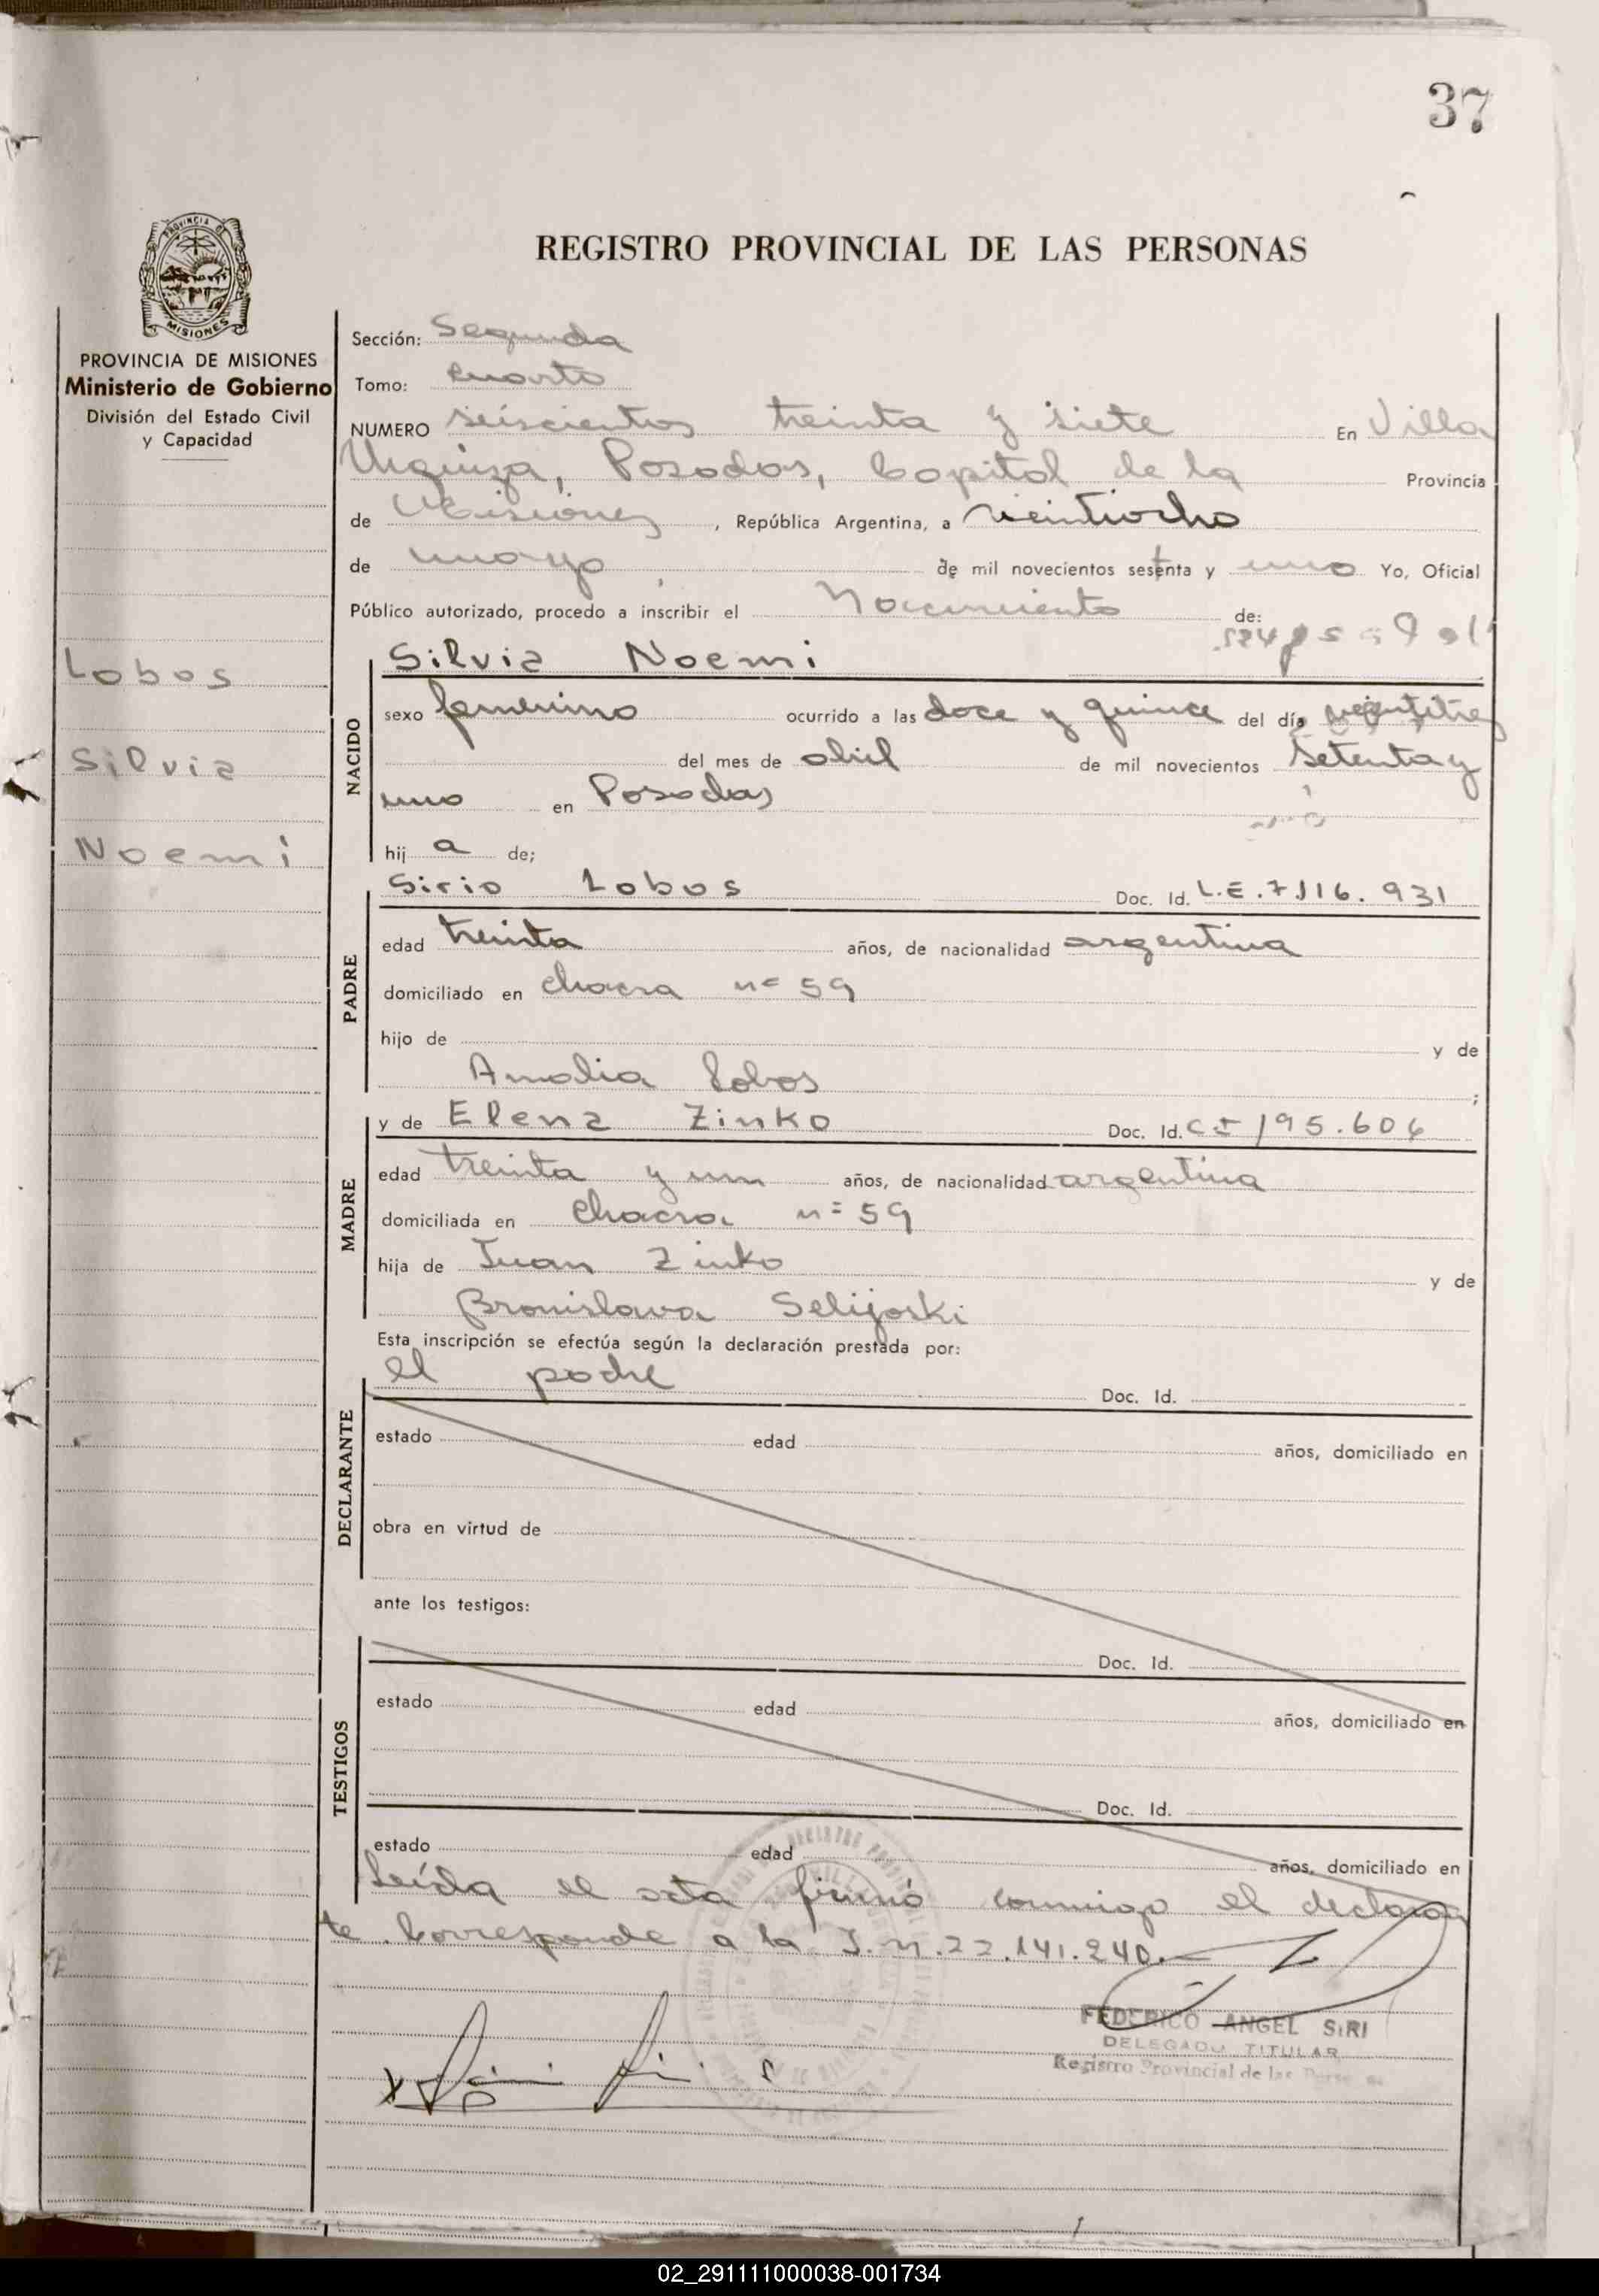 37
REGISTRO PROVINCIAL DE LAS PERSONAS
PROVINCIA DE
MISIONES
PROVINCIA DE MISIONES
Ministerio de Gobierno
División del Estado Civil
y Capacidad
Lobos
Silvia
Noemi
Sección: Segunda
Tomo: cuarto
NUMERO seiscientos treinta y siete En Villa
Urquiza, Posadas, Capital de la Provincia
de Misiones, República Argentina, a veintiocho
de mayo de mil novecientos setenta y uno Yo, Oficial
Público autorizado, procedo a inscribir el Nacimiento de:
Silvia Noemi
NACIDO
sexo femenino ocurrido a las doce y quince del día veintitres
del mes de abril de mil novecientos setenta y
uno en Posadas
hij a de;
Sirio Lobos Doc. Id. L.E. 7.116.931
PADRE
edad treinta años, de nacionalidad argentina
domiciliado en chacra nº 59
hijo de y de
Amalia Lobos ;
y de Elena Zinko Doc. Id. CI 195.604
MADRE
edad treinta y un años, de nacionalidad argentina
domiciliada en chacra nº 59
hija de Juan Zinko y de
Bronislava Selijoski
Esta inscripción se efectúa según la declaración prestada por:
el padre Doc. Id.
DECLARANTE
estado edad años, domiciliado en
obra en virtud de
ante los testigos:
Doc. Id.
TESTIGOS
estado edad años, domiciliado en
Doc. Id.
estado edad años, domiciliado en
Leída el acta firmó conmigo el declaran
te. Corresponde a la I.N.22.141.240.
FEDERICO ANGEL SIRI
DELEGADO TITULAR
Registro Provincial de las
02_291111000038-001734